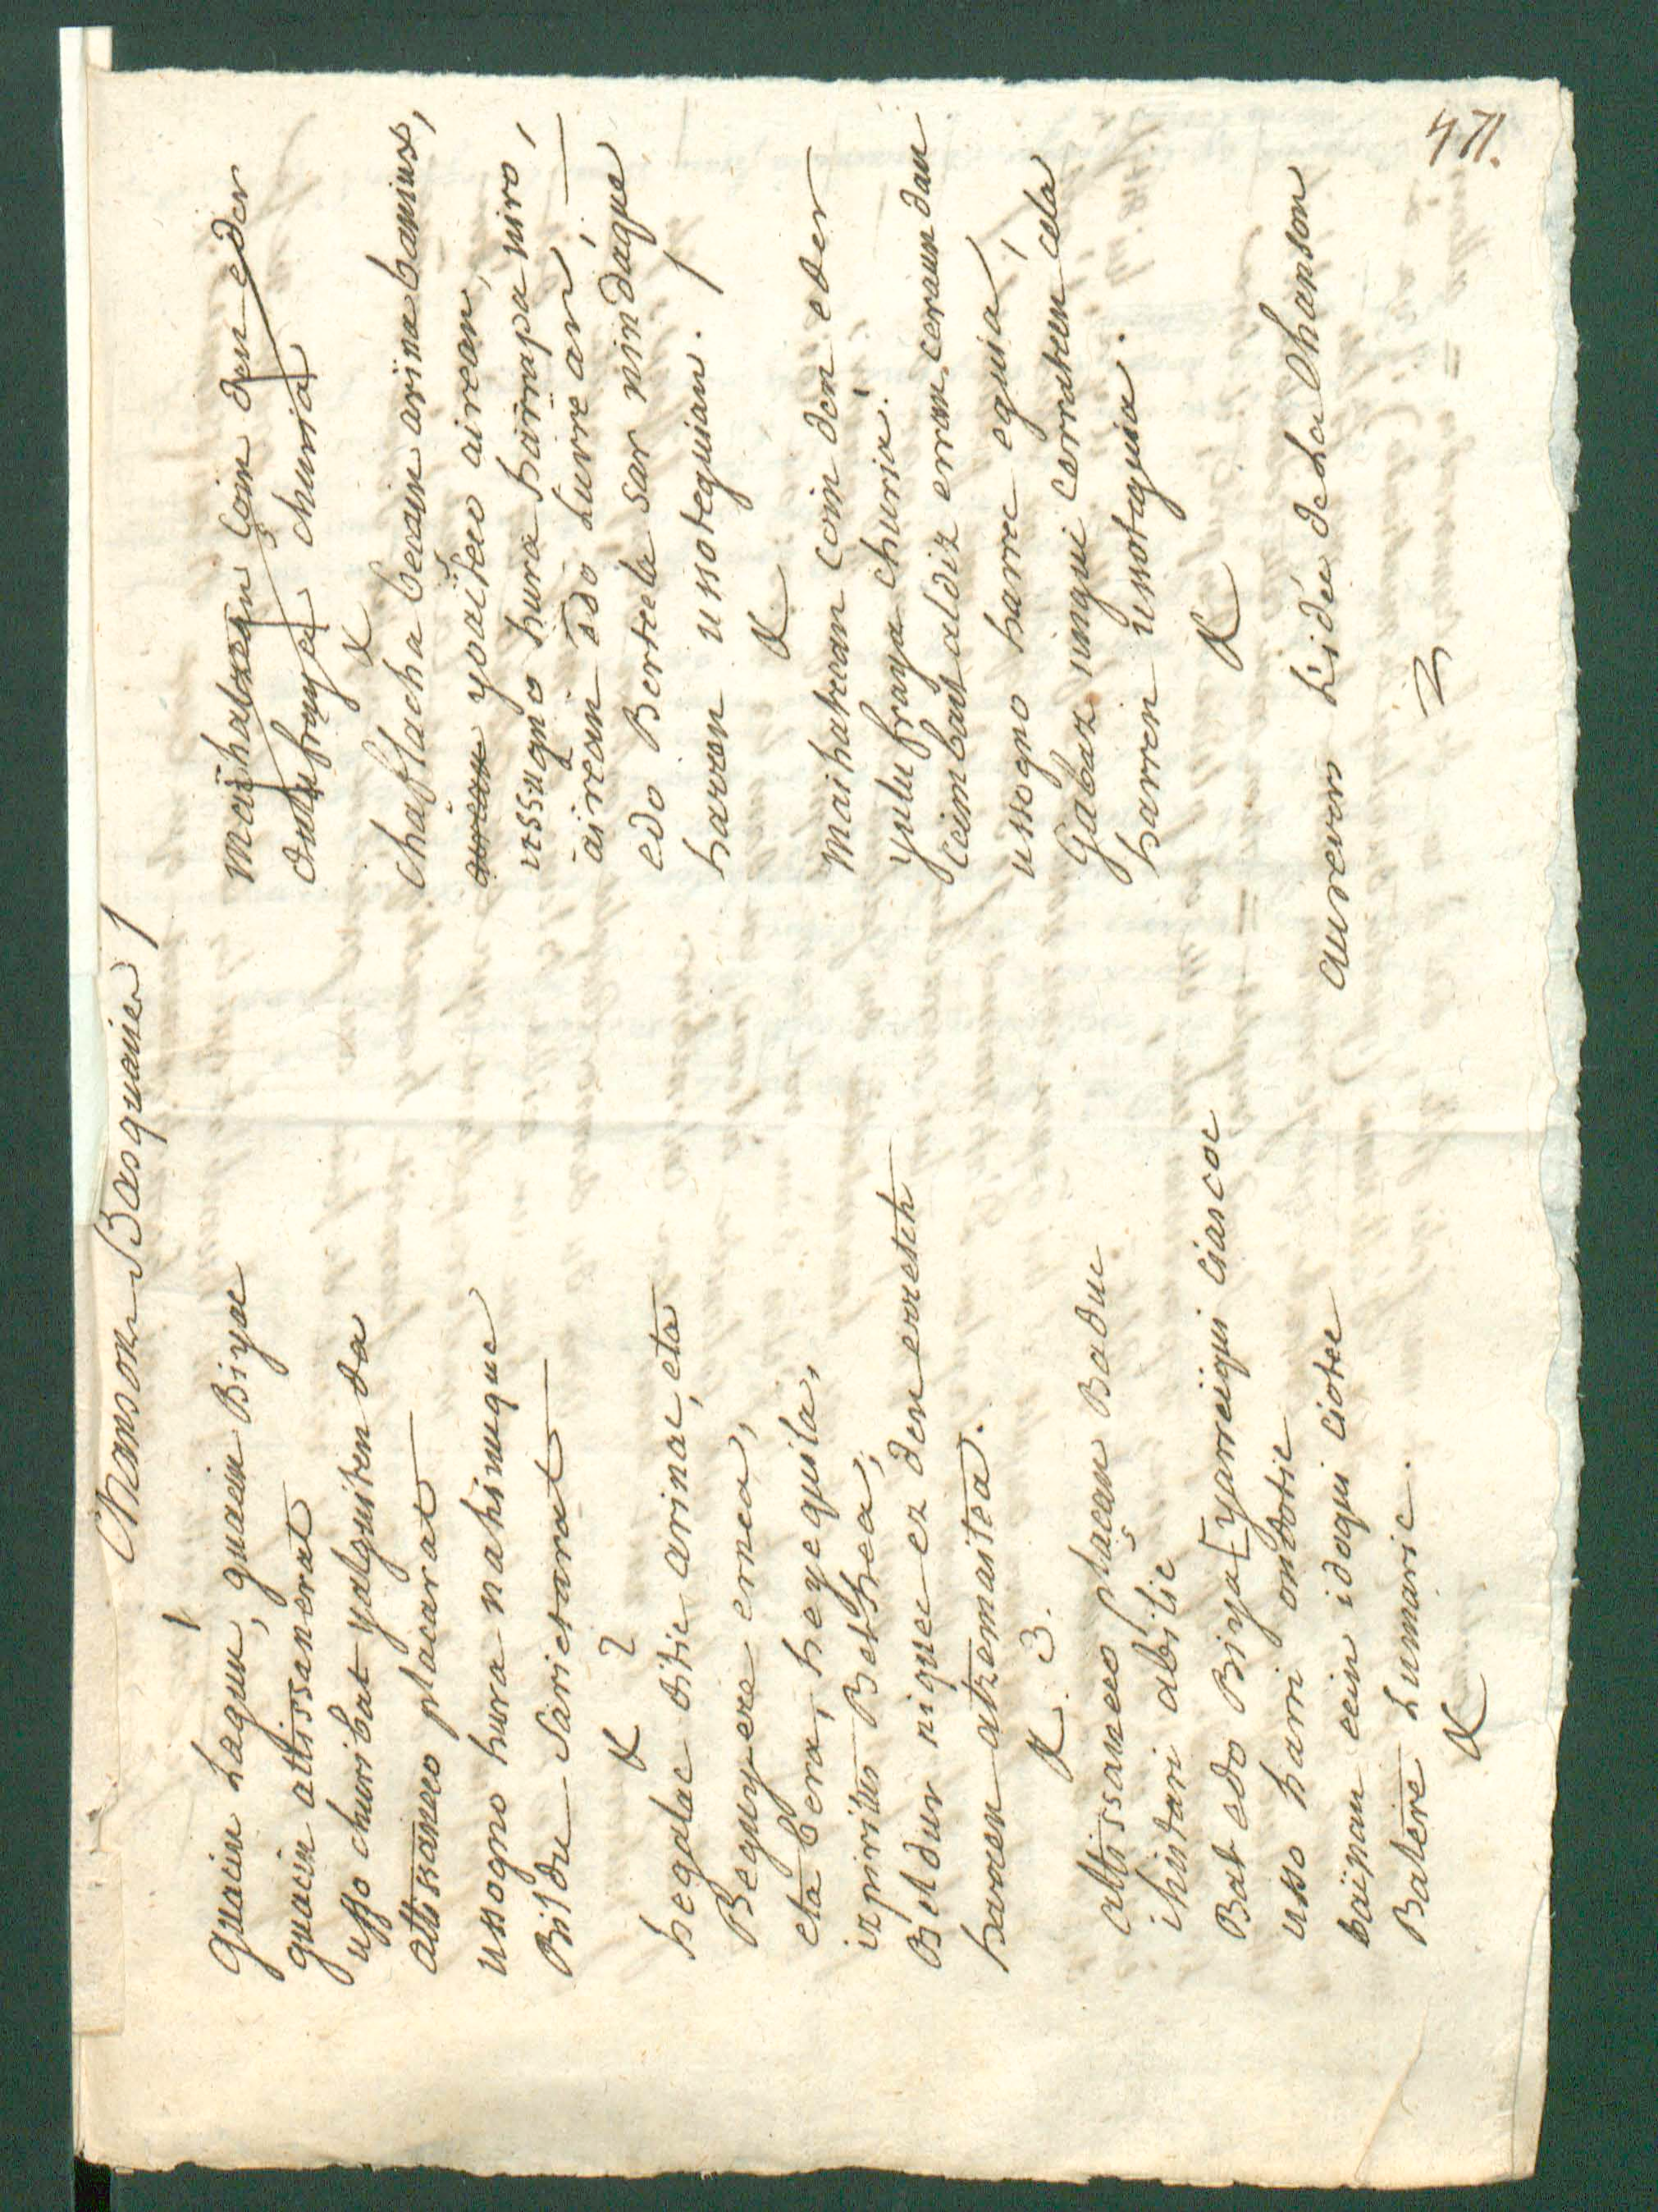 Chanson Basquaise
1
guacin Lagun, guacin Biyac
guacin attissanerat
usso churi bat yalguiten da
attissaneco placarat
ussogno hura nahi nuque
Bildu Sarietarat
2
hegalac ditic arinac, eta
Beguyere ernea,
eta bera, heyeguila,
izpiritus Bethea,
Beldur niquec ez den errech
harren atzemaitea.
3.
attissaneco plaçan Baduc
ihistari abilic
Bat edo Biya [yarreiqui ciascoc
usso harri ondotic
bainan ecin idoqui ciotec
Batere Lumaric.
chaflacha becain arina banintz,
yoaiteco airean,
ussogno hura harrapa niro,
airean edo Lurrean,
edo Bertcela sar nindaque
harren ussoteguian.
maihatcean coin den eder
yulufraya churia.
cembat aldiz erran ceraun dan
ussogno harrec eguia
Gabaz nungui corratcen cela
harren ussoteguia.
aurevoir L'idée de La Chanson
471.